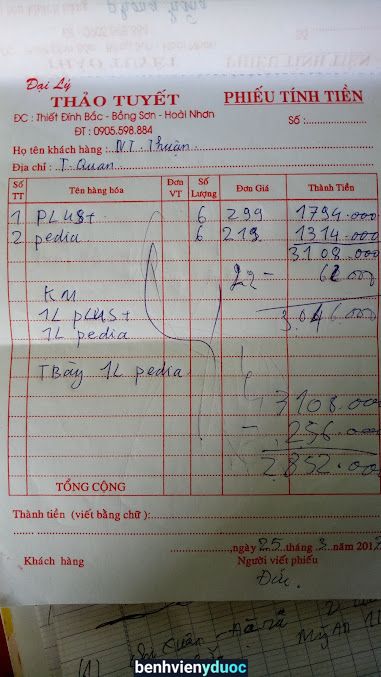 Đại Lý
THẢO TUYẾT
ĐC : Thiết Đính Bắc - Bồng Sơn - Hoài Nhơn
ĐT : 0905.598.884
PHIẾU TÍNH TIỀN
Số :
Họ tên khách hàng : NT. Thuận
Địa chỉ : T. Quan
Số TT Tên hàng hóa Đơn VT Số Lượng Đơn Giá Thành Tiền
1 PLUS+ 6 299 1794.000
2 pedia 6 219 1314.000
3108.000
2% - 62.000
KM
3.046.000
1L PLUS+
1L pedia
TBày 1L pedia
3108.000
- 256.000
2.852.000
TỔNG CỘNG
Thành tiền (viết bằng chữ) :
ngày 25 tháng 3 năm 2017
Khách hàng Người viết phiếu
Đức
benhvienyduoc